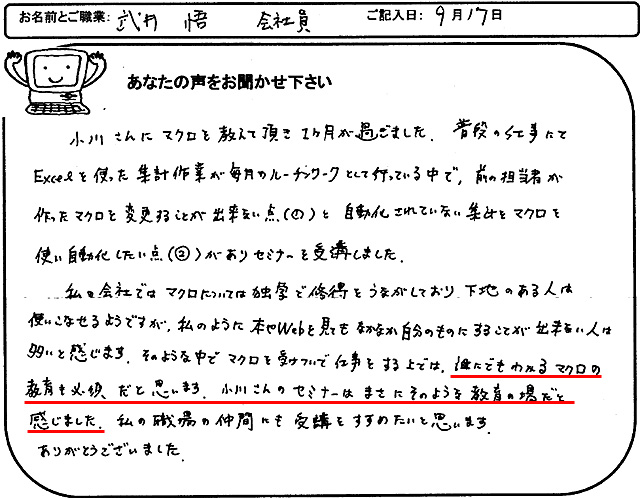 お名前とご職業: 武井 悟 会社員 ご記入日: 9月17日
あなたの声をお聞かせ下さい
小川さんにマクロを教えて頂き1ヶ月が過ぎました。普段の仕事にて
Excelを使った集計作業が毎月のルーチンワークとして行っている中で、前の担当者が
作ったマクロを変更することが出来ない点(①)と自動化されていない集計をマクロを
使い自動化したい点(②)がありセミナーを受講しました。
私の会社ではマクロについては独学で修得をうながしており下地のある人は
使いこなせるようですが、私のように本やWebを見てもなかなか自分のものにすることが出来ない人は
多いと感じます。そのような中でマクロを受けついで仕事をする上では、誰にでもわかるマクロの
教育も必須だと思います。小川さんのセミナーはまさにそのような教育の場だと
感じました。私の職場の仲間にも受講をすすめたいと思います。
ありがとうございました。